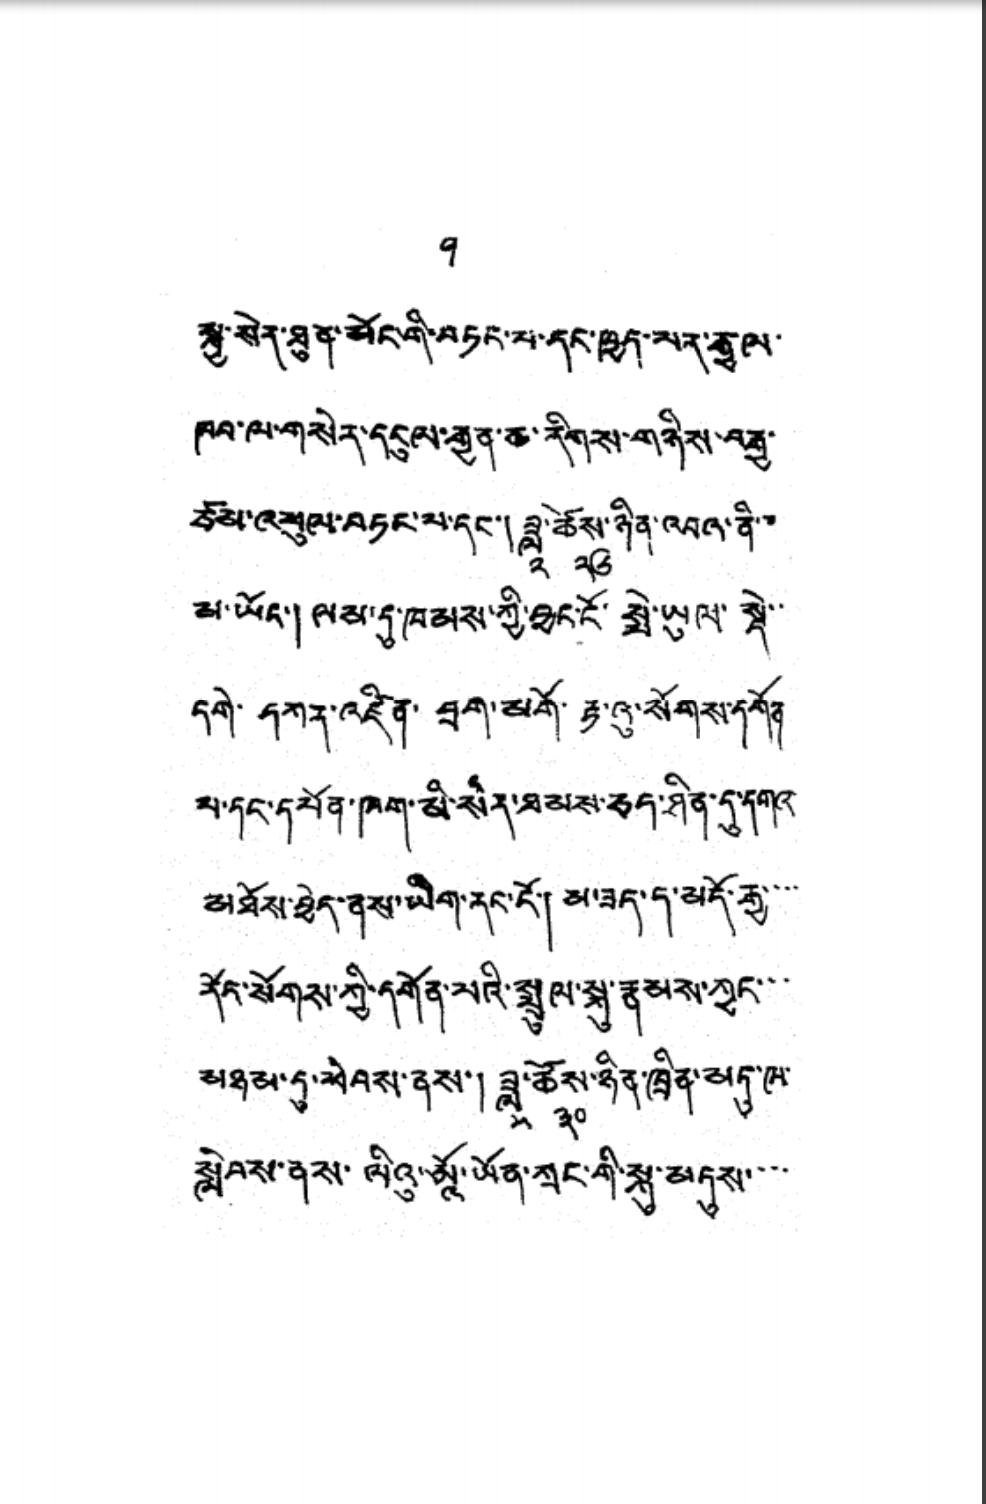 ༡
སྐྱ་སེར་ཐུན་མོང་གི་བཏང་པ་དང་ཁྱད་པར་རྒྱལ་
ཁབ་ལ་གསེར་དངུལ་རྒྱན་ཆ་རིགས་གཉིས་བརྒྱ་
ཙམ་འཕུལ་བཏང་པ་དང་། ཟླ་ཚེས་ཉིན་འབའ་ནི་
༢ ༢༦
མ་ཡོད། ལམ་དུ་ཁམས་ཀྱི་ཐང་ངོ་ སྨེ་ཡུལ་ སྡེ་
དགེ་ དཀར་འཛིན་ བྲག་མགོ་ རྟ་འུ་སོགས་དགོན་
པ་དང་དཔོན་ཁག་མི་སེར་ཐམས་ཅད་ཤིན་ཏུ་དགའ་
མཐོས་བྱེད་ནས་ཡིག་རང་ངོ་། མ་ཟད་ད་མདོ་རྒྱ་
རོད་སོགས་ཀྱི་དགོན་པའི་སྤྲུལ་སྐུ་རྣམས་ཀྱང་
མཉམ་དུ་ཕེབས་ནས། ཟླ་ཚེས་ཉིན་ཁྲིན་མདུ་ལ་
༥ ༣༠
སླེབས་ནས་ ལིའུ་མོ་ཡོན་ཀྲང་གི་སྐུ་མདུས་